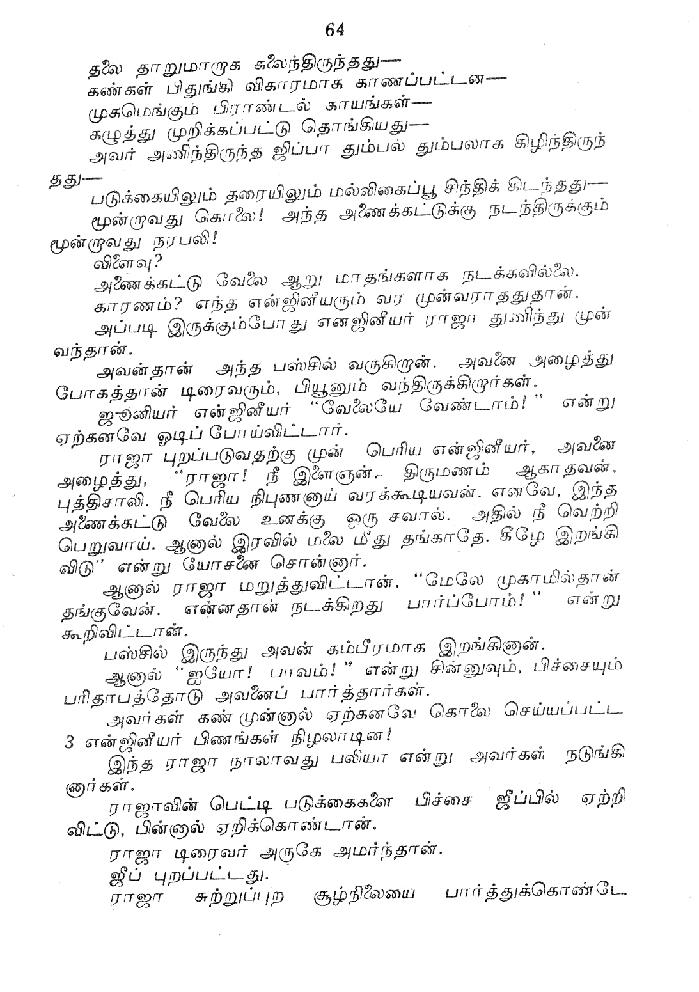 64
தலை தாறுமாறாக கலைந்திருந்தது—
கண்கள் பிதுங்கி விகாரமாக காணப்பட்டன—
முகமெங்கும் பிராண்டல் காயங்கள்—
கழுத்து முறிக்கப்பட்டு தொங்கியது—
அவர் அணிந்திருந்த ஜிப்பா தும்பல் தும்பலாக கிழிந்திருந்
தது—
படுக்கையிலும் தரையிலும் மல்லிகைப்பூ சிந்திக் கிடந்தது—
மூன்றாவது கொலை! அந்த அணைக்கட்டுக்கு நடந்திருக்கும்
மூன்றாவது நரபலி!
விளைவு?
அணைக்கட்டு வேலை ஆறு மாதங்களாக நடக்கவில்லை.
காரணம்? எந்த என்ஜினீயரும் வர முன்வராததுதான்.
அப்படி இருக்கும்போது எனஜினீயர் ராஜா துணிந்து முன்
வந்தான்.
அவன்தான் அந்த பஸ்சில் வருகிறான். அவனை அழைத்து
போகத்தான் டிரைவரும், பியூனும் வந்திருக்கிறார்கள்.
ஜூனியர் என்ஜினீயர் “வேலையே வேண்டாம்!” என்று
ஏற்கனவே ஓடிப் போய்விட்டார்.
ராஜா புறப்படுவதற்கு முன் பெரிய என்ஜினீயர், அவனை
அழைத்து, “ராஜா! நீ இளைஞன். திருமணம் ஆகாதவன்.
புத்திசாலி. நீ பெரிய நிபுணனாய் வரக்கூடியவன். எனவே, இந்த
அணைக்கட்டு வேலை உனக்கு ஒரு சவால். அதில் நீ வெற்றி
பெறுவாய். ஆனால் இரவில் மலை மீது தங்காதே. கீழே இறங்கி
விடு” என்று யோசனை சொன்னார்.
ஆனால் ராஜா மறுத்துவிட்டான். “மேலே முகாமில்தான்
தங்குவேன். என்னதான் நடக்கிறது பார்ப்போம்!” என்று
கூறிவிட்டான்.
பஸ்சில் இருந்து அவன் கம்பீரமாக இறங்கினான்.
ஆனால் “ஐயோ! பாவம்!” என்று சின்னுவும், பிச்சையும்
பரிதாபத்தோடு அவனைப் பார்த்தார்கள்.
அவர்கள் கண் முன்னால் ஏற்கனவே கொலை செய்யப்பட்ட
3 என்ஜினீயர் பிணங்கள் நிழலாடின!
இந்த ராஜா நாலாவது பலியா என்று அவர்கள் நடுங்கி
னார்கள்.
ராஜாவின் பெட்டி படுக்கைகளை பிச்சை ஜீப்பில் ஏற்றி
விட்டு, பின்னால் ஏறிக்கொண்டான்.
ராஜா டிரைவர் அருகே அமர்ந்தான்.
ஜீப் புறப்பட்டது.
ராஜா சுற்றுப்புற சூழ்நிலையை பார்த்துக்கொண்டே